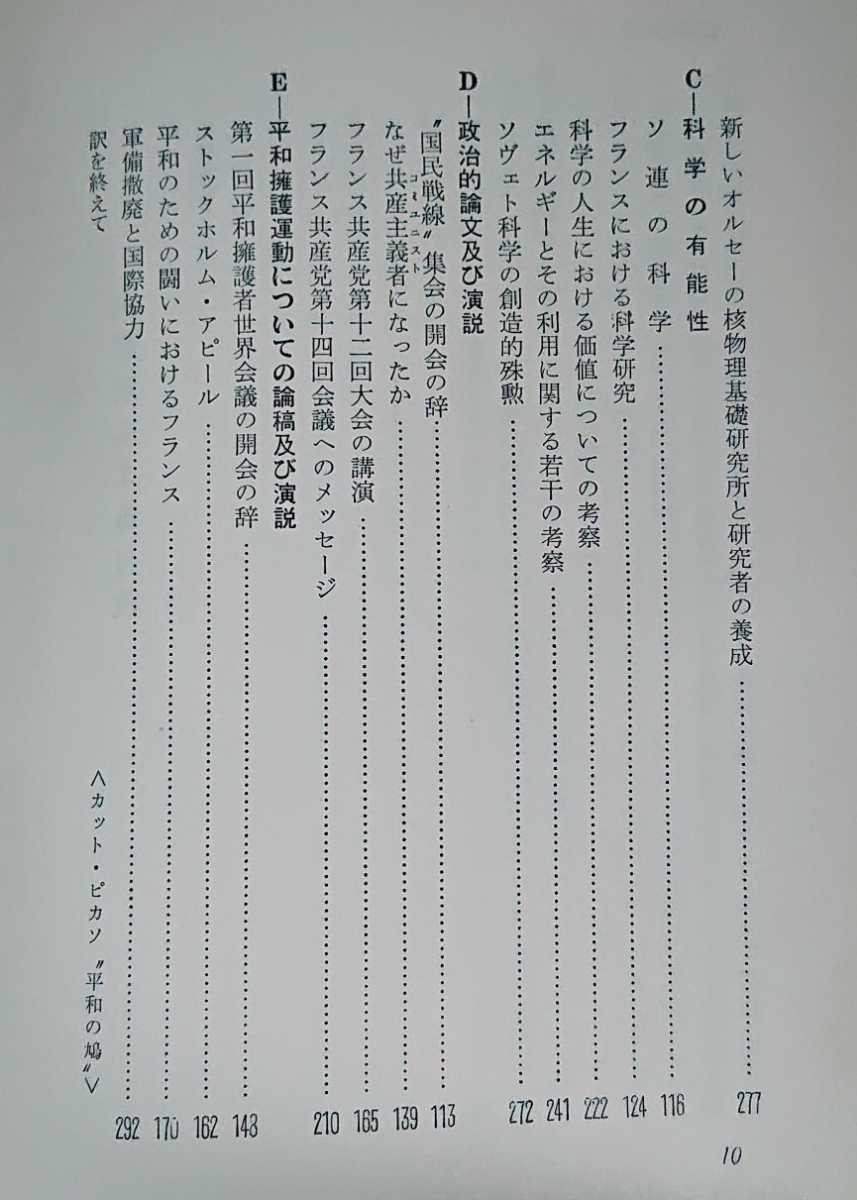 新しいオルセーの核物理基礎研究所と研究者の養成…………277
C―科学の有能性
ソ連の科学…………116
フランスにおける科学研究…………124
科学の人生における価値についての考察…………222
エネルギーとその利用に関する若干の考察…………241
ソヴェト科学の創造的殊勲…………272
D―政治的論文及び演説
〝国民戦線〟集会の開会の辞…………113
なぜ共産主義者になったか…………139
コミユニスト
フランス共産党第十二回大会の講演…………165
フランス共産党第十四回会議へのメッセージ…………210
E―平和擁護運動についての論稿及び演説
第一回平和擁護者世界会議の開会の辞…………143
ストックホルム・アピール…………162
平和のための闘いにおけるフランス…………170
軍備撤廃と国際協力…………292
訳を終えて
＜カット・ピカソ〝平和の鳩〟＞
10